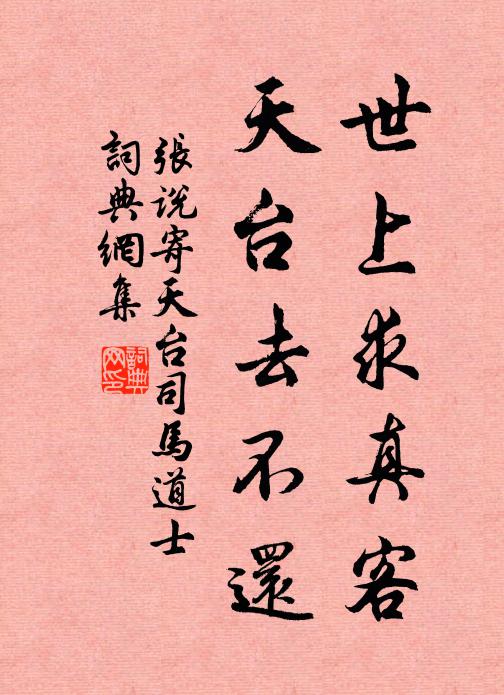 世上求真客
天台去不還
張說寄天台司馬道士
詞典網集
詞典網印